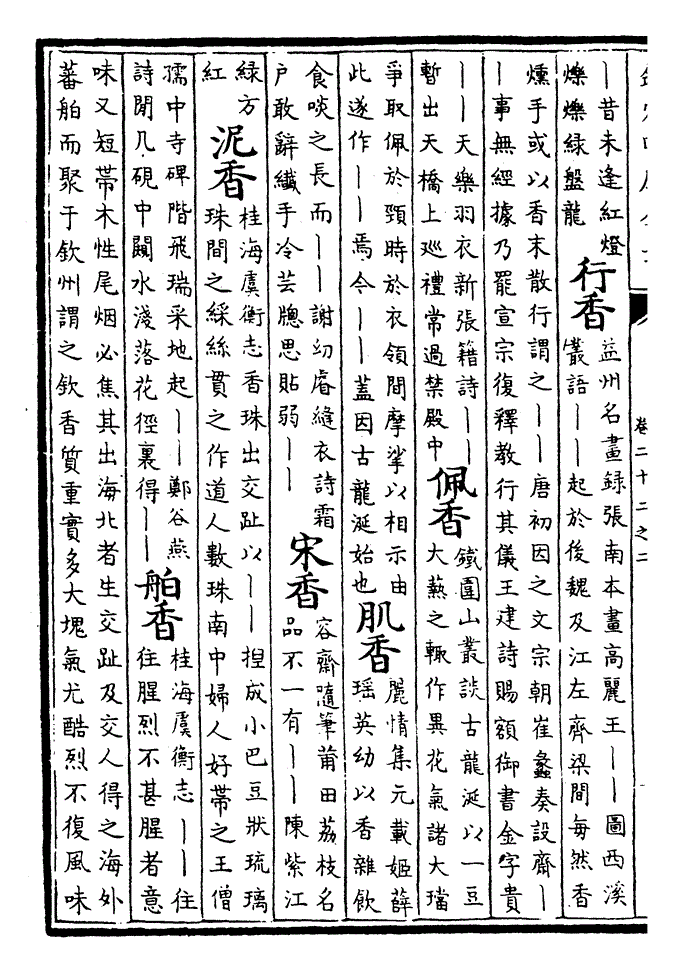 卷二十二之二
丨昔未逢紅燈
爍爍緑盤龍
行香
益州名畫録張南本畫高麗王丨丨圖西溪
叢語丨丨起於後魏及江左齊梁間每然香
燻手或以香末散行謂之丨丨唐初因之文宗朝崔蠡奏設齋丨
丨事無經據乃罷宣宗復釋教行其儀王建詩賜額御書金字貴
丨丨天樂羽衣新張籍詩丨丨
暫出天橋上廵禮常過禁殿中
佩香
鐵圍山叢談古龍涎以一豆
大爇之輒作異花氣諸大璫
爭取佩於頸時於衣領間摩挲以相示由
此遂作丨丨焉今丨丨蓋因古龍涎始也
肌香
麗情集元載姬薛
瑶英幼以香雜飲
食啖之長而丨丨謝幼睿縫衣詩霜
户敢辭纎手冷芸牕思貼弱丨丨
宋香
容齋隨筆莆田荔枝名
品不一有丨丨陳紫江
緑方
紅
泥香
桂海虞衡志香珠出交趾以丨丨揑成小巴豆狀琉璃
珠間之綵絲貫之作道人數珠南中婦人好帶之王僧
孺中寺碑階飛瑞采地起丨丨鄭谷燕
詩閑几硯中闚水淺落花徑裏得丨丨
舶香
桂海虞衡志丨丨往
往腥烈不甚腥者意
味又短帶木性尾烟必焦其出海北者生交趾及交人得之海外
蕃舶而聚于欽州謂之欽香質重實多大塊氣尤酷烈不復風味